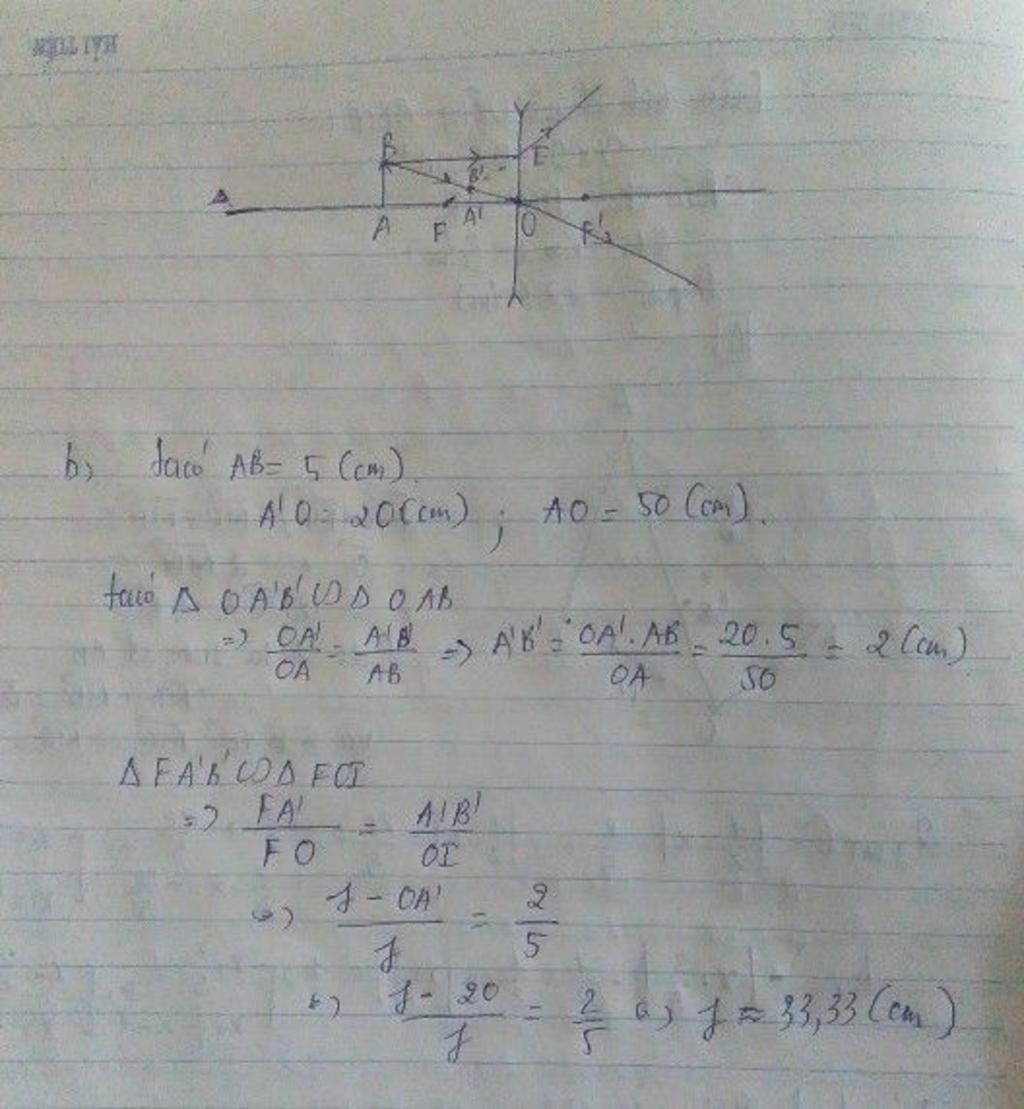 HẢI TIẾN
B E
B'
Δ
A F A' O F'
b) ta có AB = 5 (cm).
A'O = 20 (cm) ; AO = 50 (cm).
ta có Δ OA'B' ∽ Δ OAB
=> OA'/OA = A'B'/AB => A'B' = OA'.AB/OA = 20.5/50 = 2 (cm)
Δ FA'B' ∽ Δ FOI
=> FA'/FO = A'B'/OI
<=> f - OA'/f = 2/5
<=> f - 20/f = 2/5 <=> f ≈ 33,33 (cm)